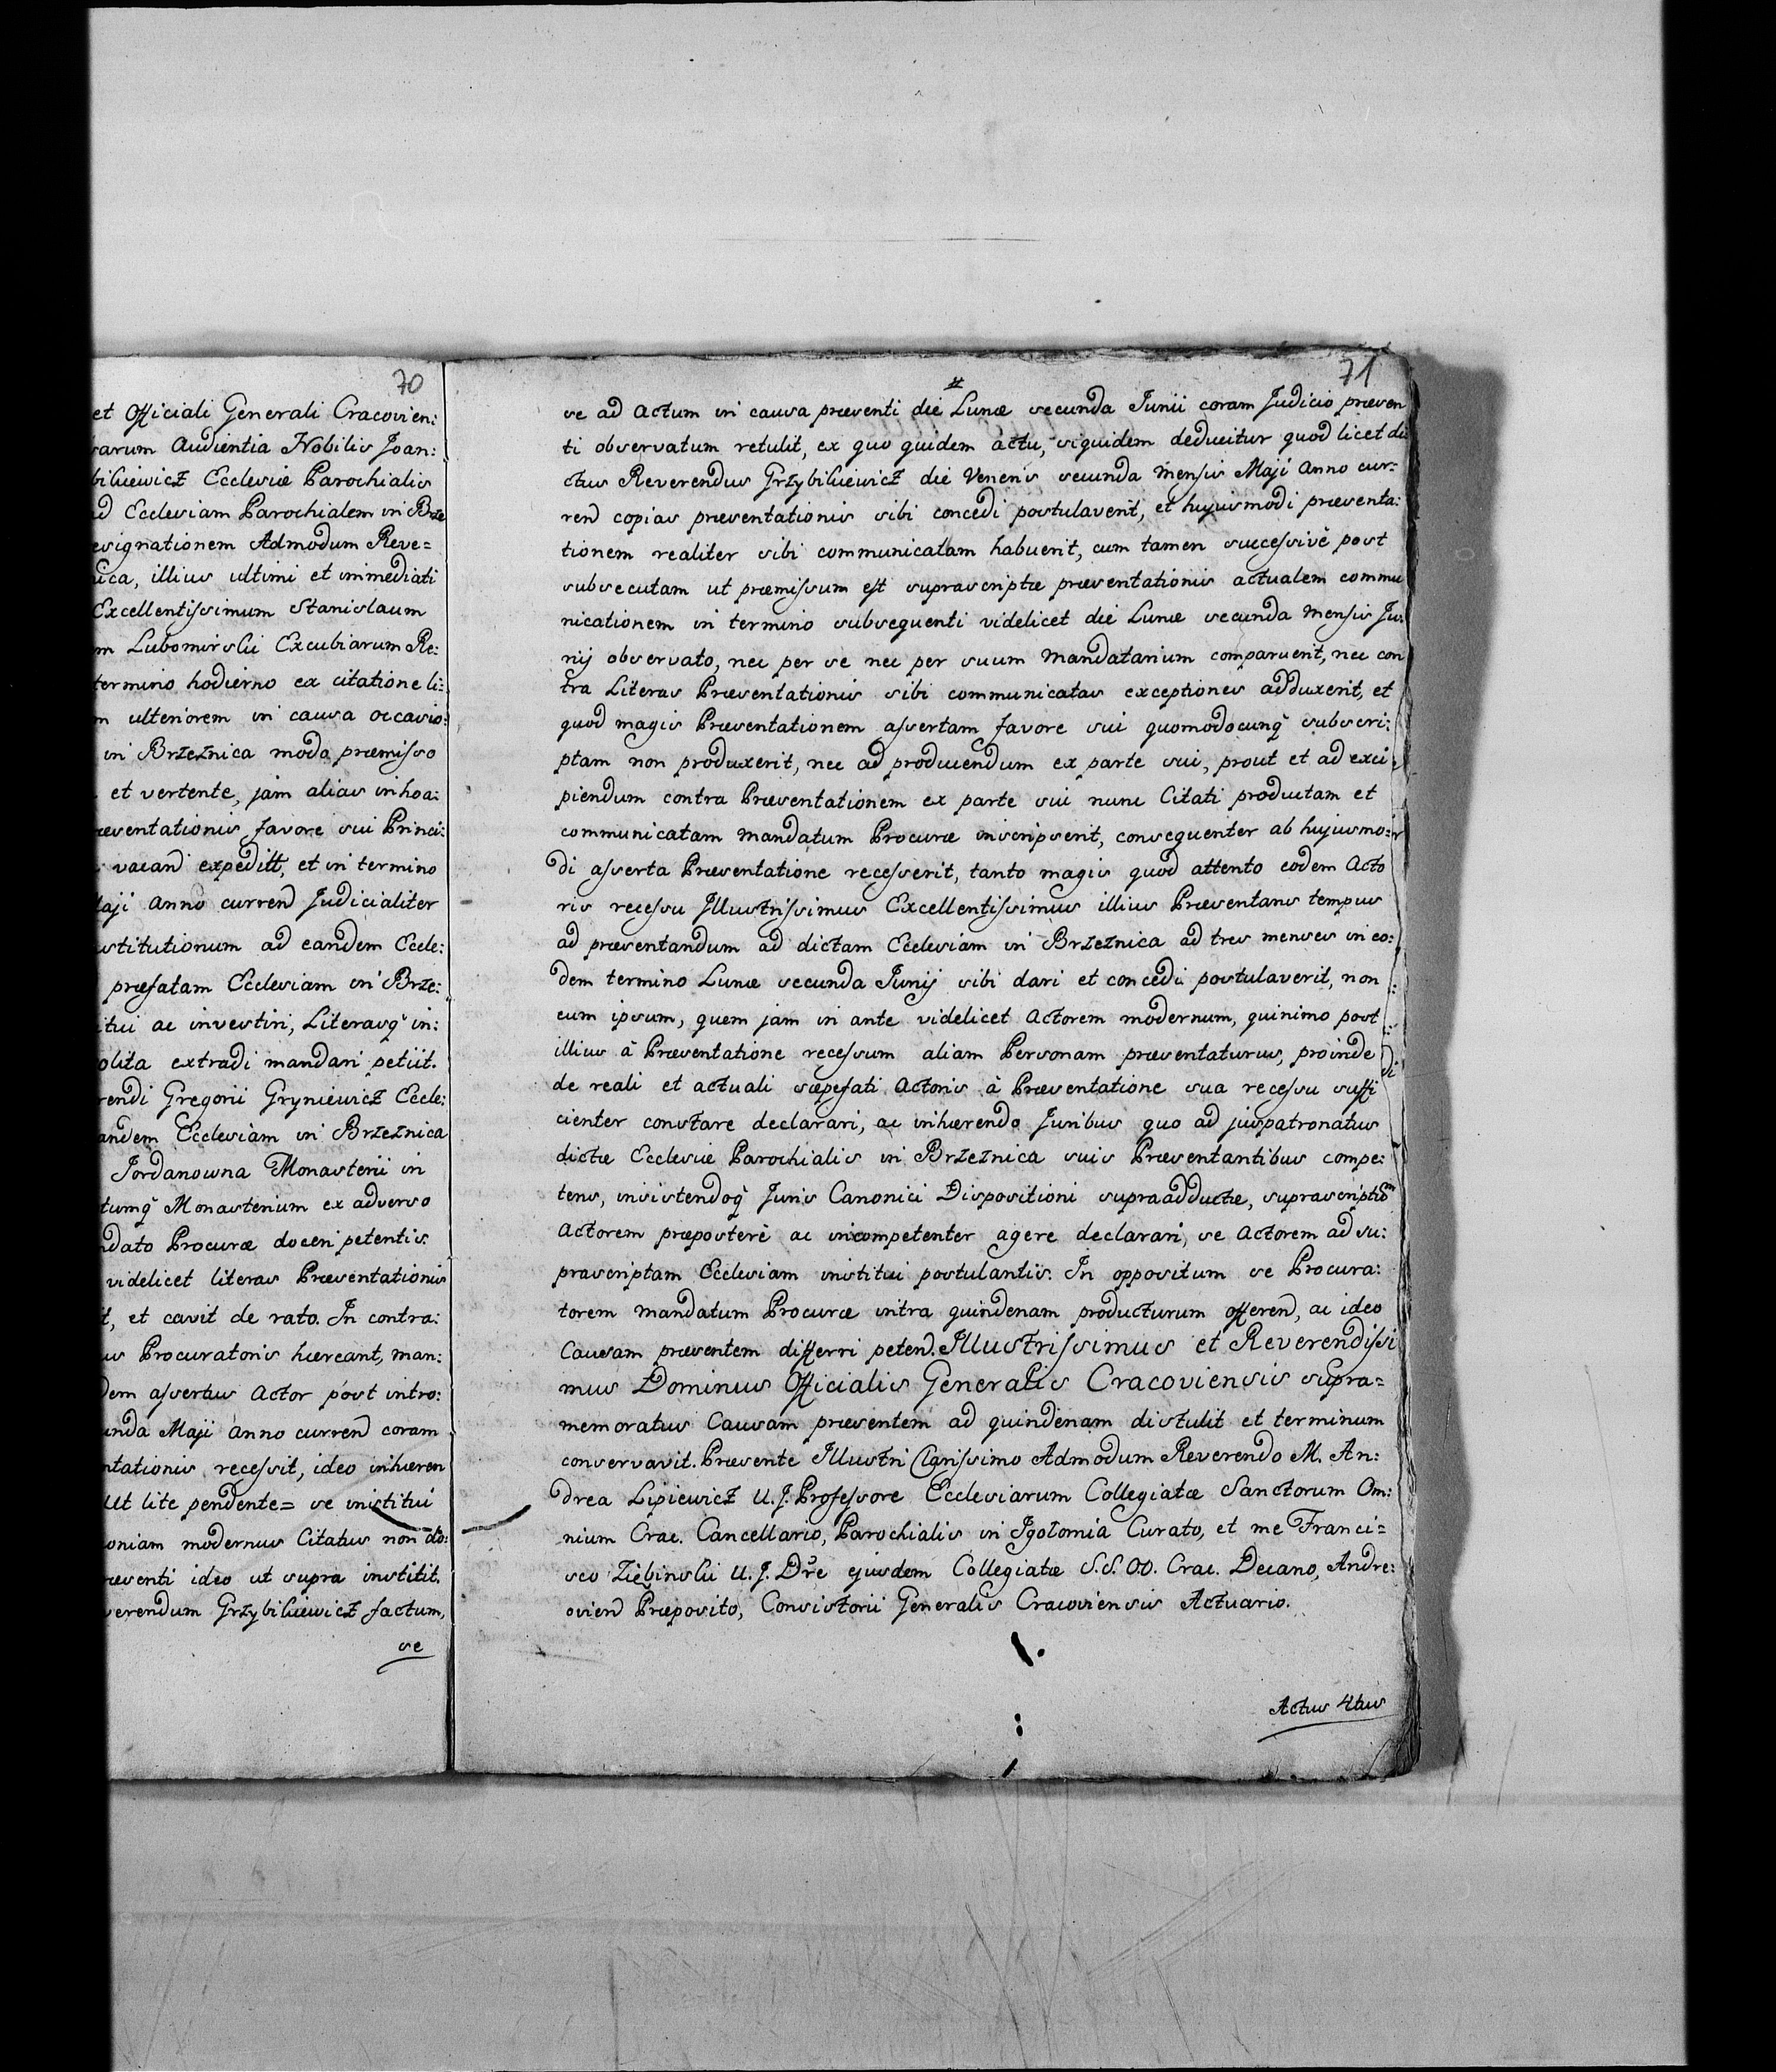 70
et Officiali Generali Cracovien:
rarum Audientia Nobilis Joan:
bilkiewicz Ecclesiæ Parochialis
ad Ecclesiam Parochialem in Brze
esignationem Admodum Reve=
nica, illius ultimi et immediati
Excellentissimum Stanislaum
m Lubomirski Excubiarum Re:
termino hodierno ex citatione li:
m ulteriorem in causa occasio:
in Brzeznica modo præmisso
et vertente, jam alias in hoa:
ræsentationis favore sui Princi:
vacand expeditt, et in termino
Maji Anno currend Judicialiter
nstitutionum ad eandem Eccle:
præfatam Ecclesiam in Brze:
itui ac investiri, Literasq in:
olita extradi mandari petiit.
rendi Gregorii Gryniewicz Eccle:
andem Ecclesiam in Brzeznica
Jordanowna Monasterii in
tumq Monasterium ex adverso
ndato Procuræ doceri petentis
videlicet literas Præsentationis
t, et cavit de rato. In contra:
us Procuratoris hæreant, man:
dem assertus Actor post intro:
unda Maji Anno currend coram
ntationis recessit, ideo inhæren
ut lite pendente = se institui
oniam modernus Citatus non do:
ræsenti ideo ut supra institit.
verendum Grzybilkiewicz factum,
se
71
se ad Actum in causa præsenti die Lunæ secunda Junii coram Judicio præsen
ti observatum retulit, ex quo quidem actu, siquidem deducitur quod licet di
ctus Reverendus Grzybilkiewicz die Veneris secunda Mensis Maji Anno cur:
rend copias præsentationis sibi concedi postulaverit, et hujusmodi præsenta:
tionem realiter sibi communicatam habuerit, cum tamen successivè post
subsecutam ut præmissum est suprascriptæ præsentationis actualem commu
nicationem in termino subsequenti videlicet die Lunæ secunda Mensis Ju:
nij observato, nec per se nec per suum Mandatarium comparuerit, nec con
tra Literas Præsentationis sibi communicatas exceptiones adduxerit, et
quod magis Præsentationem assertam favore sui quomodocunq subscri:
ptam non produxerit, nec ad producendum ex parte sui, prout et ad exci
piendum contra Præsentationem ex parte sui nunc Citati productam et
communicatam Mandatum Procuræ inscripserit, consequenter ab hujusmo=
di asserta Præsentatione recesserit, tanto magis quod attento eodem Acto
ris recessu Illustrissimus Excellentissimus illius Præsentans tempus
ad præsentandum ad dictam Ecclesiam in Brzeznica ad tres menses in eo:
dem termino Lunæ secunda Junij sibi dari et concedi postulaverit, non
eum ipsum, quem jam in ante videlicet Actorem modernum, quinimo post
illius à Præsentatione recessum aliam Personam præsentaturus, proinde
de reali et actuali sæpefati Actoris à Præsentatione sua recessu suffi
cienter constare declarari, ac inhærendo Juribus quo ad juspatronatus
dictæ Ecclesiæ Parochialis in Brzeznica suis Præsentantibus compe:
tens, insistendoq Juris Canonici Dispositioni supraadductæ, suprascriptum
Actorem præposterè ac incompetenter agere declarari, se Actorem ad su:
prascriptam Ecclesiam institui postulantis. In oppositum se Procura:
torem Mandatum Procuræ intra quindenam producturum offerend, ac ideo
Causam præsentem differri petend. Illustrissimus et Reverendissi
mus Dominus Officialis Generalis Cracoviensis supra=
memoratus Causam præsentem ad quindenam distulit et terminum
conservavit. Præsente Illustri Clarissimo Admodum Reverendo M. An:
drea Lipiewicz U. J. Professore Ecclesiarum Collegiatæ Sanctorum Om:
nium Crac. Cancellario, Parochialis in Igołomia Curato, et me Franci=
sco Ziębinski U. J. Dre ejusdem Collegiatæ S.S. O.O. Crac. Decano, Andre:
oviend Præposito, Consistorii Generalis Cracoviensis Actuario.
Actus 4tus